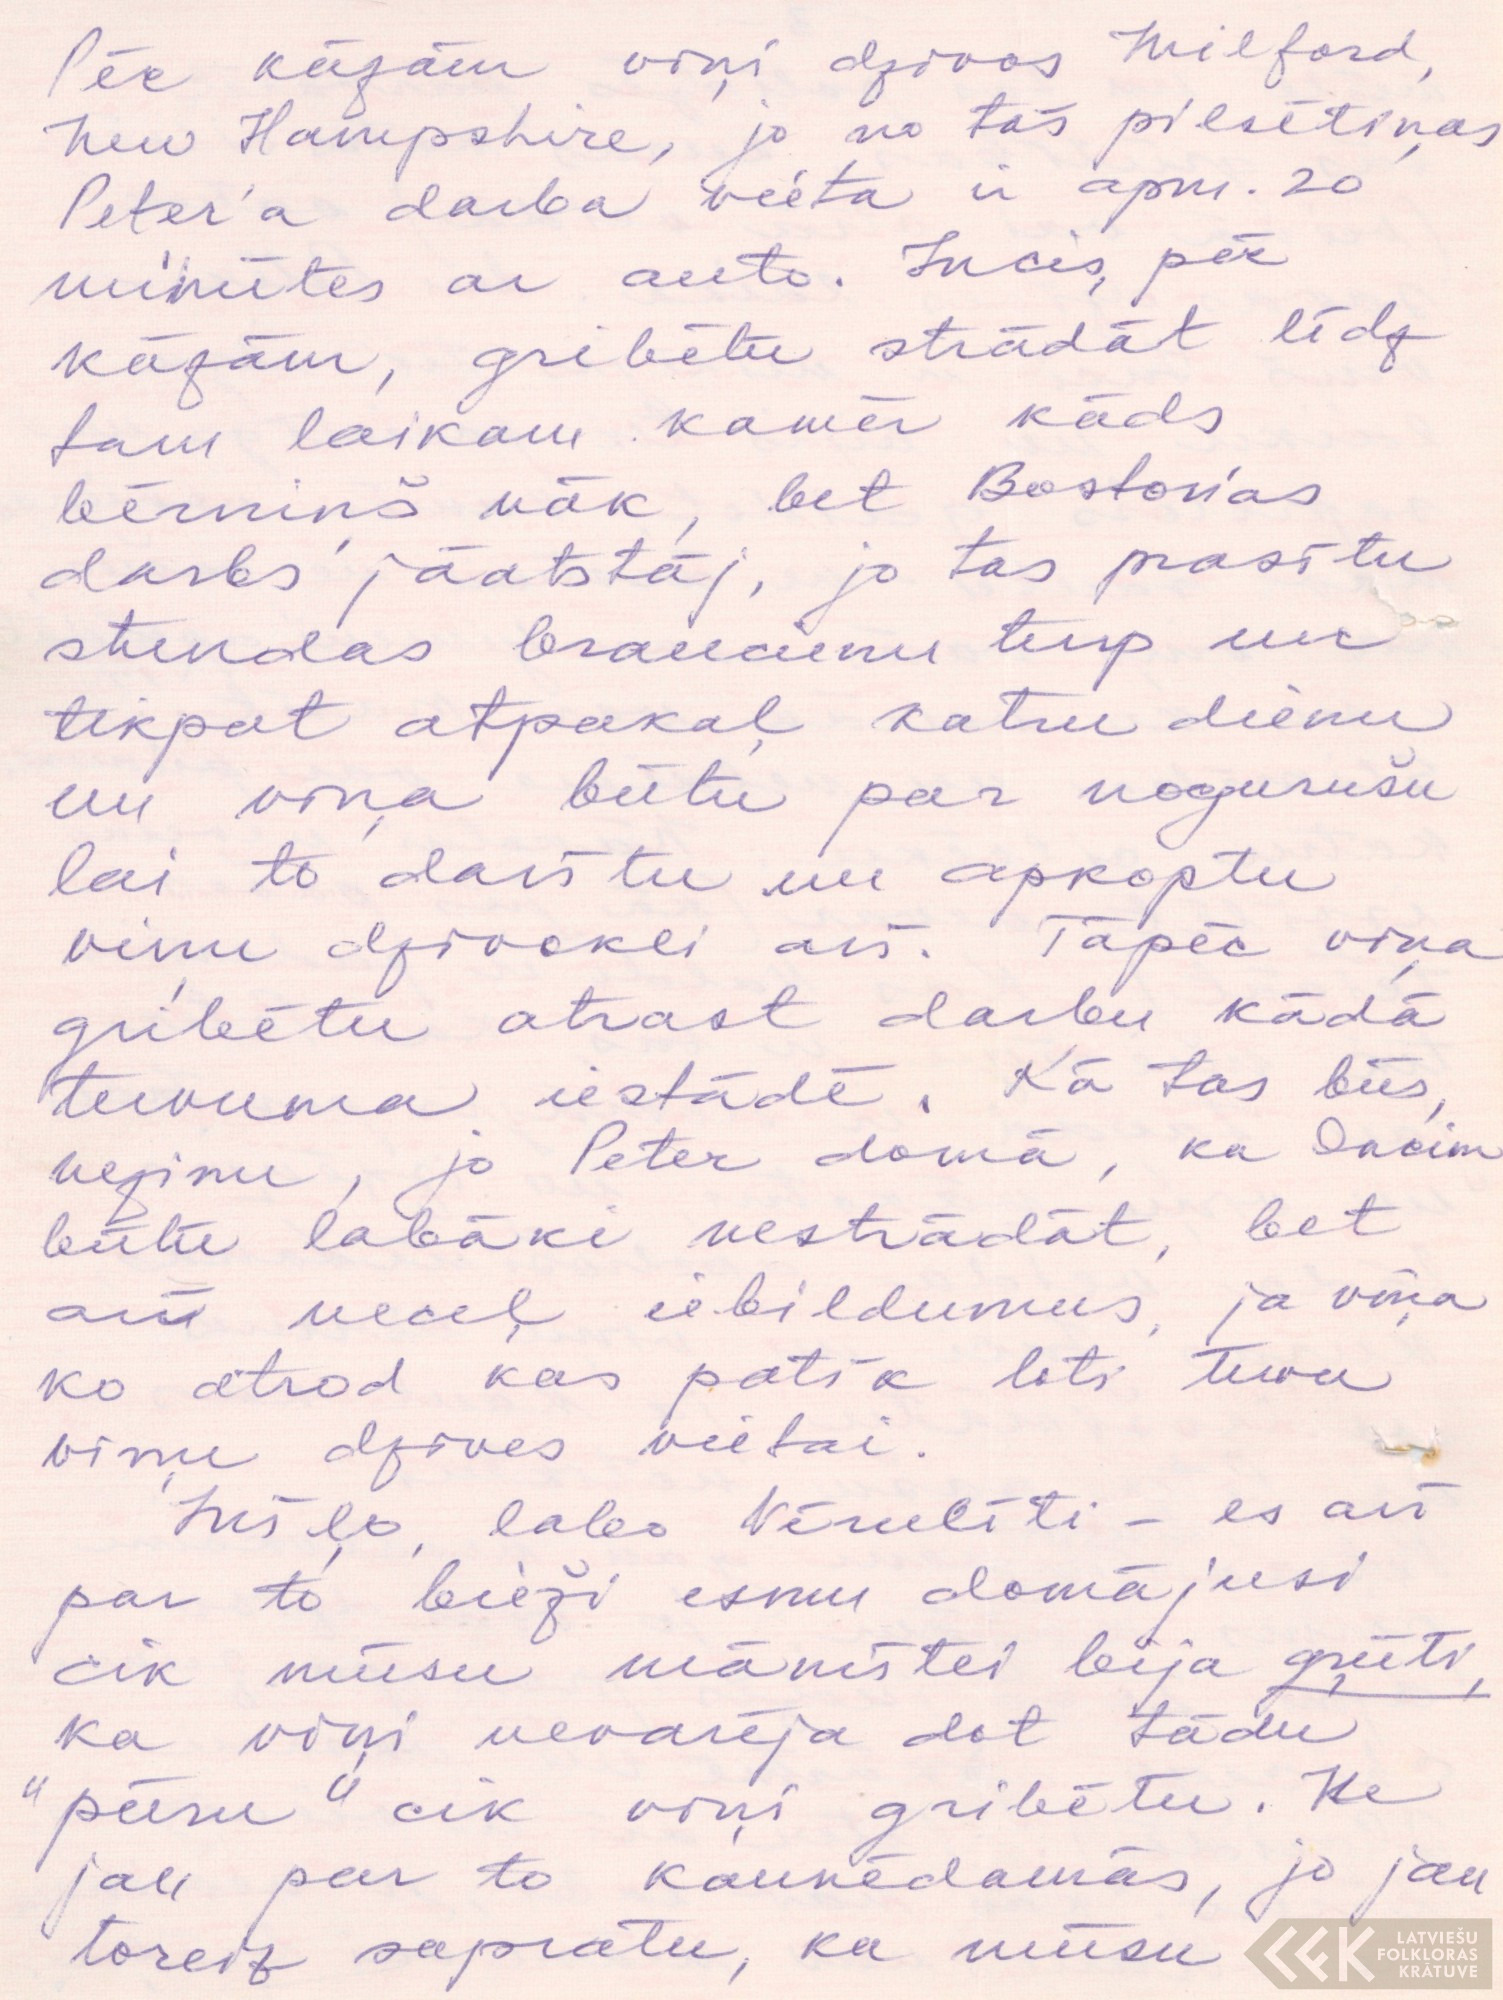 Pēc kāzām viņi dzīvos Milford,
New Hampshire, jo no tās pilsētiņas
Peter'a darba vieta ir apm. 20
minūtes ar auto. Incis, pēc
kāzām, gribētu strādāt līdz
tam laikam kamēr kāds
bērniņš nāk, bet Boston'as
darbs jāatstāj, jo tas prasītu
stundas braucienu turp un
tikpat atpakaļ katru dienu
un viņa būtu par nogurušu
lai to darītu un apkoptu
viņu dzīvokli arī. Tāpēc viņa
gribētu atrast darbu kādā
tuvuma iestādē. Kā tas būs,
nezinu, jo Peter domā, ka Incim
būtu labāki nestrādāt, bet
arī neceļ iebildumus, ja viņa
ko atrod kas patīk ļoti tuvu
viņu dzīves vietai.
Mīļo, labo Vērulīti - es arī
par to bieži esmu domājusi
cik mūsu māmītei bija grūti,
ka viņi nevarēja dot tādu
"pūru" cik viņi gribētu. Ne
jau par to kaunēdamās, jo jau
toreiz sapratu, ka mūsu
LATVIEŠU
FOLKLORAS
KRĀTUVE